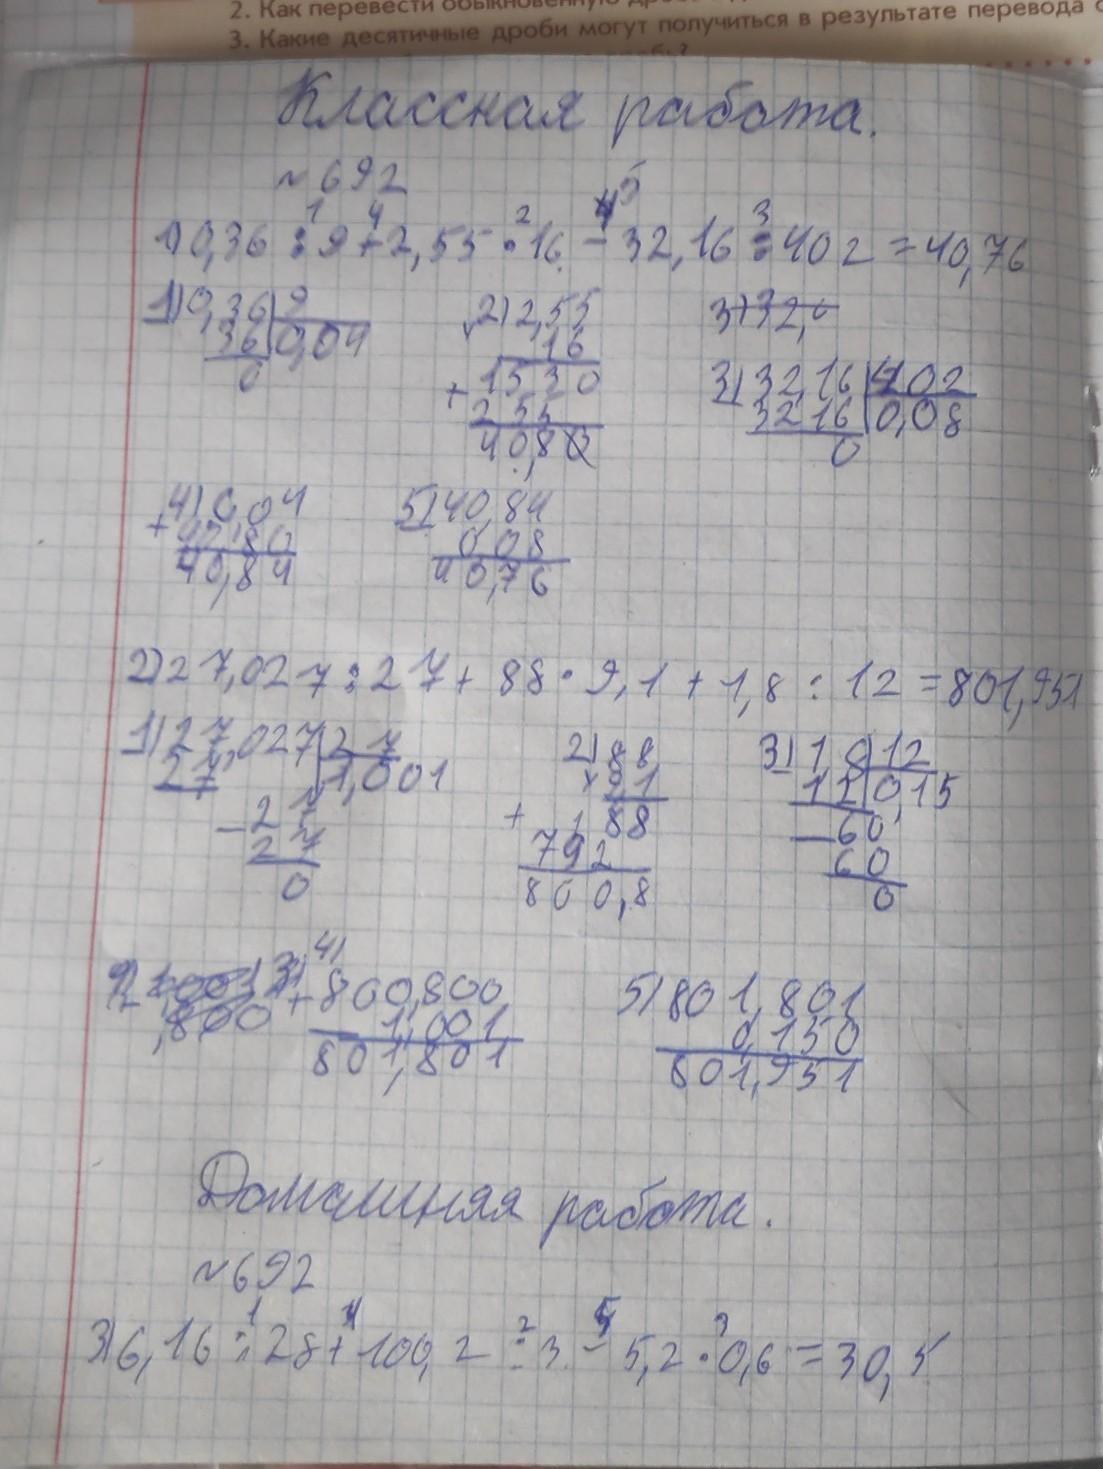 2. Как перевести обыкновенную
3. Какие десятичные дроби могут получиться в результате перевода
Классная работа.
№692
1 4 2 5 3
1) 0,36 : 9 + 2,55 · 16 - 32,16 : 402 = 40,76
1) 0,36 9 2) 2,55 3) 32,
36 0,04 16
0 + 1530 3) 32,16 402
255 3216 0,08
40,80 0
4) 0,04 5) 40,84
+ 40,80 0,08
40,84 40,76
2) 27,027 : 27 + 88 · 9,1 + 1,8 : 12 = 801,951
1) 27,027 27 2) 88 3) 1,8 12
27 1,001 × 9,1 12 0,15
- 27 + 88 - 60
27 792 60
0 800,8 0
4)
+ 800,800 5) 801,801
1,001 0,150
801,801 801,951
Домашняя работа.
№692
1 4 2 5 3
3) 6,16 : 28 + 100,2 : 3 - 5,2 · 0,6 = 30,5